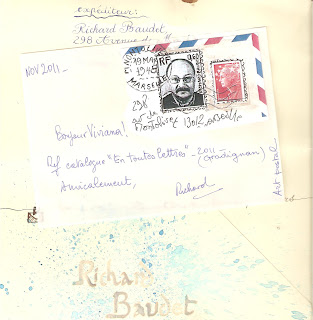 expéditeur:
Richard Baudet
298 Avenue de
NOV 2011 -
MARSEILLE
RF
298
av de
13012
Bonjour Viviana!
Ref catalogue "En toutes lettres" - 2011
(Gradignan)
Amicalement,
Richard
Art postal
Richard
Baudet